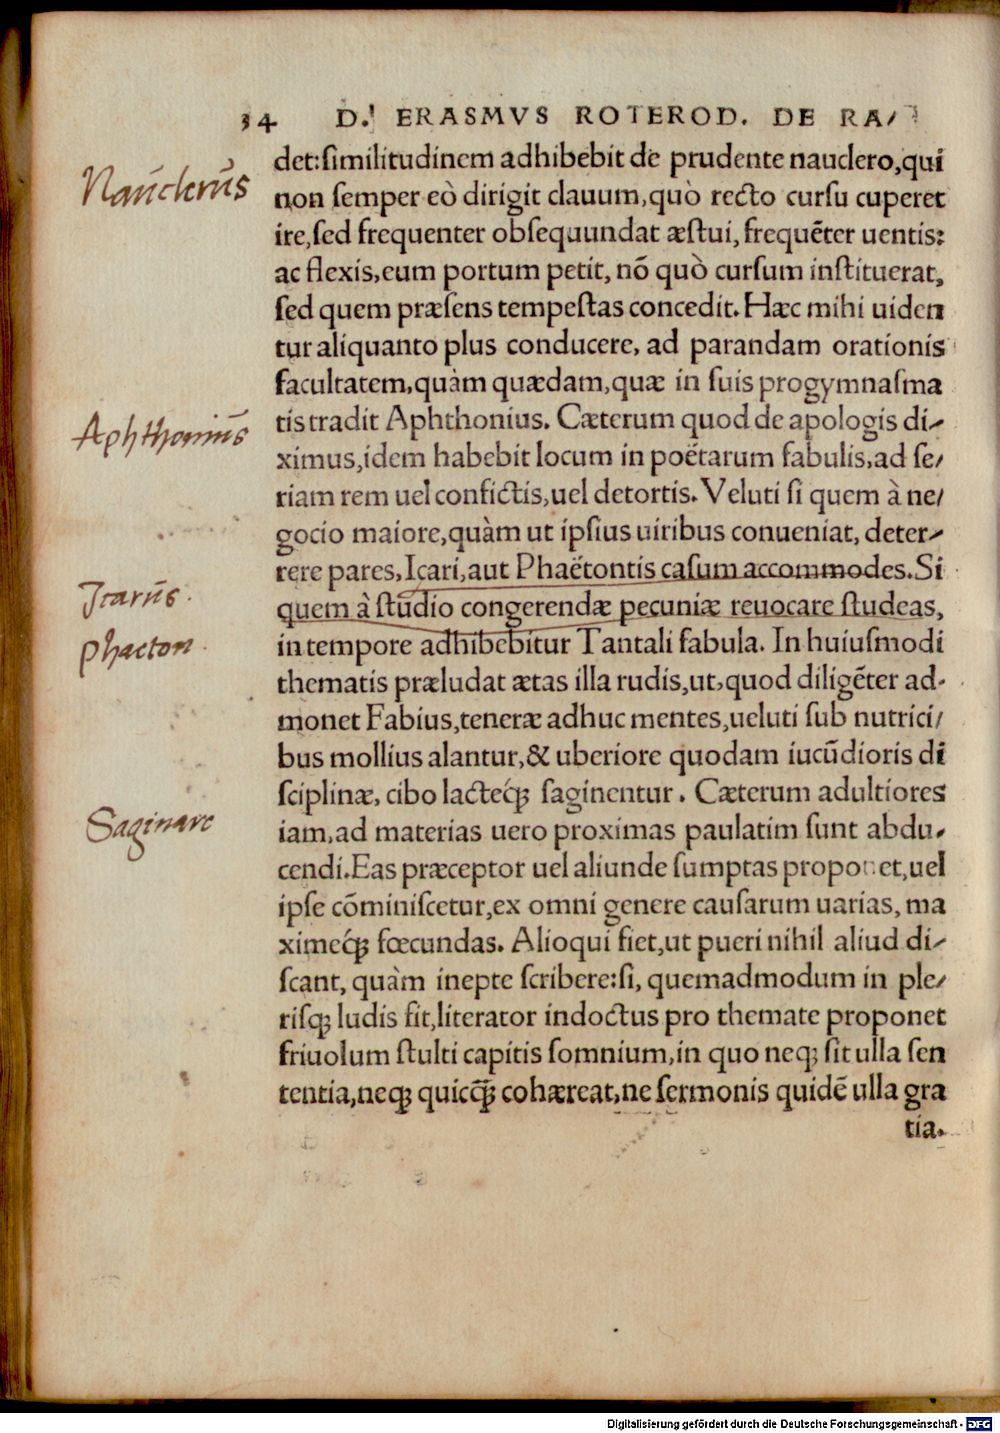 34 D. ERASMVS ROTEROD. DE RA/
det:ſimilitudinem adhibebit de prudente nauclero,qui
Nauclerus
non ſemper eò dirigit clauum,quò recto curſu cuperet
ire,ſed frequenter obſequundat æſtui, frequēter uentis:
ac flexis,eum portum petit, nō quò curſum inſtituerat,
ſed quem præſens tempeſtas concedit. Hæc mihi uiden
tur aliquanto plus conducere, ad parandam orationis
facultatem,quàm quædam,quæ in ſuis progymnaſma
tis tradit Aphthonius. Cæterum quod de apologis di/
Aphthonius
ximus,idem habebit locum in poëtarum fabulis,ad ſe/
riam rem uel confictis,uel detortis. Veluti ſi quem à ne/
gocio maiore,quàm ut ipſius uiribus conueniat, deter/
rere pares, Icari,aut Phaëtontis caſum accommodes. Si
Icarus.
quem à ſtudio congerendæ pecuniæ reuocare ſtudeas,
in tempore adhibebitur Tantali fabula. In huiuſmodi
Phaeton.
thematis præludat ætas illa rudis,ut,quod diligēter ad-
monet Fabius,teneræ adhuc mentes,ueluti ſub nutrici/
bus mollius alantur,& uberiore quodam iucūdioris di
ſciplinæ, cibo lacteq́ꝫ ſaginentur. Cæterum adultiores
Saginare
iam,ad materias uero proximas paulatim ſunt abdu-
cendi. Eas præceptor uel aliunde ſumptas proponet,uel
ipſe cōminiſcetur,ex omni genere cauſarum uarias, ma
ximeq́ꝫ fœcundas. Alioqui fiet,ut pueri nihil aliud di/
ſcant, quàm inepte ſcribere:ſi, quemadmodum in ple/
riſqꝫ ludis fit,literator indoctus pro themate proponet
friuolum ſtulti capitis ſomnium,in quo neqꝫ ſit ulla ſen
tentia,neqꝫ quicq̄ꝫ cohæreat,ne ſermonis quidē ulla gra
tia.
Digitalisierung gefördert durch die Deutsche Forschungsgemeinschaft - DFG